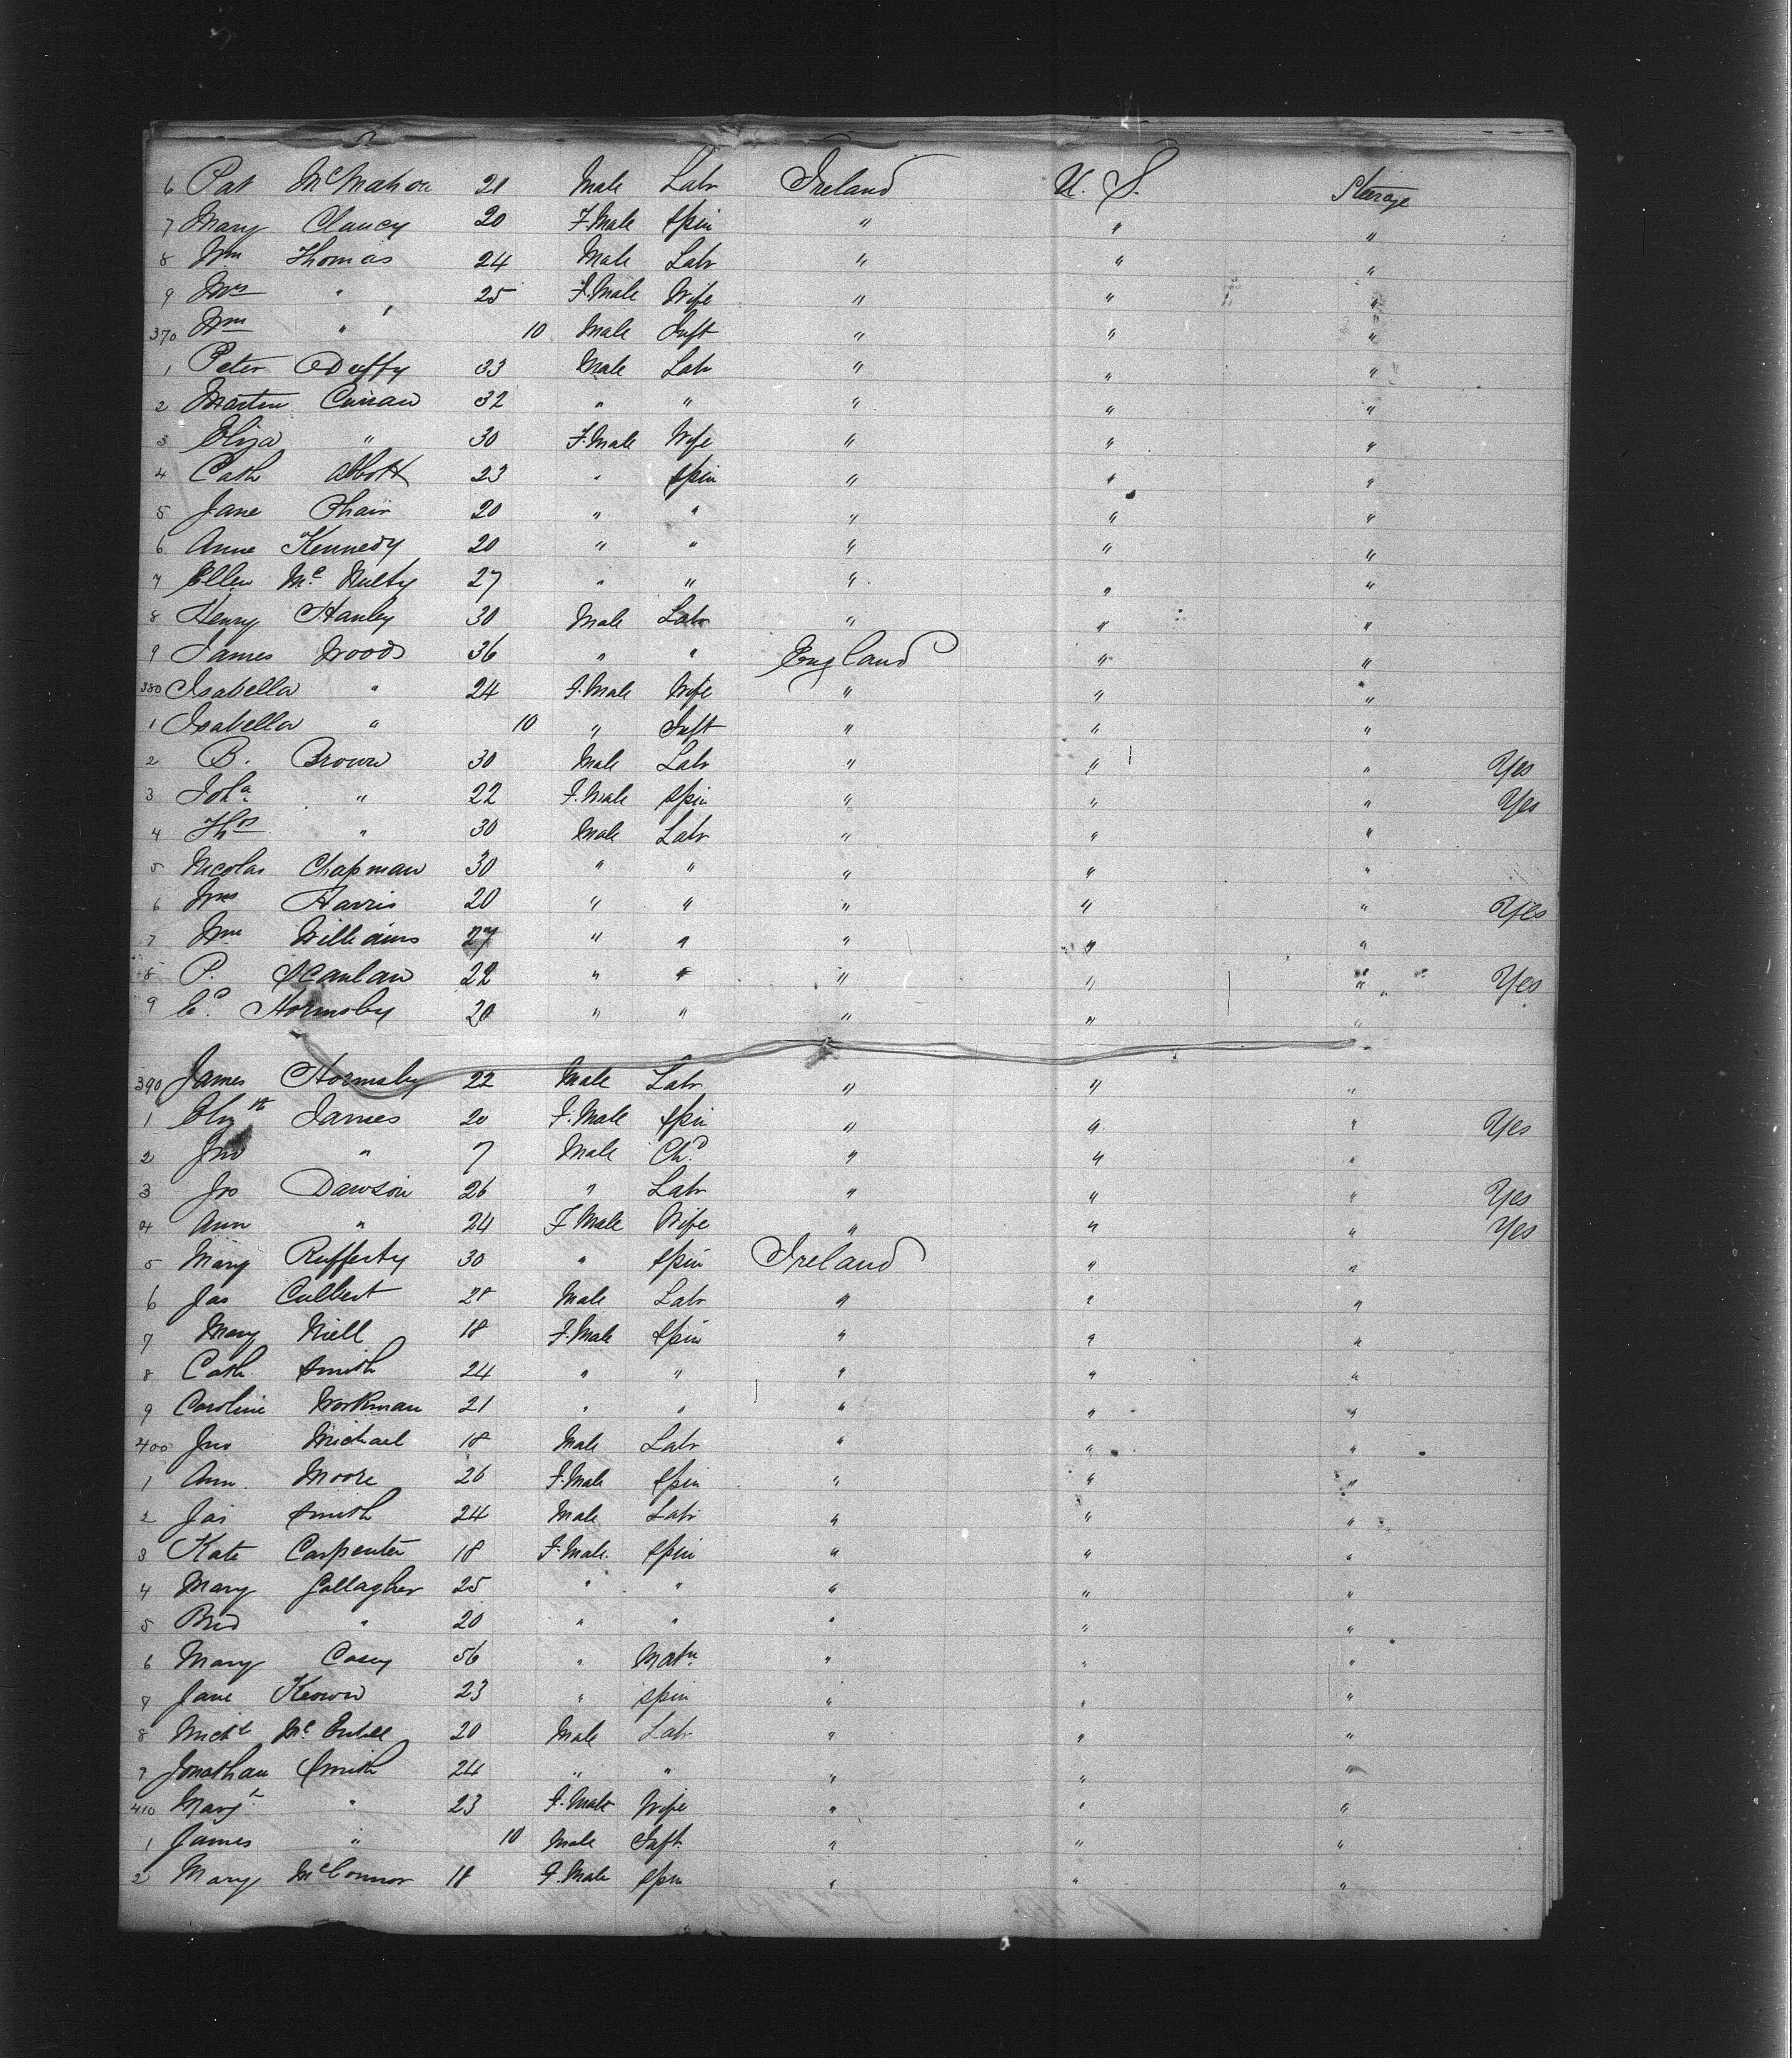 6 Pat McMahon 21 Male Labr Ireland U. S. Steerage
7 Mary Clancy 20 F.Male Spin " " "
8 Wm Thomas 24 Male Labr " " "
9 Mrs " 25 F.Male Wife " " "
370 Wm " 10 Male Inft " " "
1 Peter Duffy 33 Male Labr " " "
2 Martin Curran 32 " " " " "
3 Eliza " 30 F.Male Wife " " "
4 Cath Abbott 23 " Spin " " "
5 Jane Phair 20 " " " " "
6 Anne Kennedy 20 " " " " "
7 Ellen Mc Nulty 27 " " " " "
8 Henry Hanley 30 Male Labr " " "
9 James Woods 36 " " England " "
380 Isabella " 24 F.Male Wife " " "
1 Isabella " 10 " Inft " " "
2 B. Brown 30 Male Labr " " " Yes
3 Joha " 22 F.Male Spin " " " Yes
4 Thos " 30 Male Labr " " "
5 Nicolas Chapman 30 " " " " "
6 Wm Harris 20 " " " " " Yes
7 Wm Williams 27 " " " " "
8 P. Scanlan 22 " " " " " Yes
9 Ed. Hormsby 20 " " " " "
390 James Hormsby 22 Male Labr " " "
1 Elizth James 20 F.Male Spin " " " Yes
2 Jno " 7 Male Chd " " "
3 Jos Dawson 26 " Labr " " " Yes
4 Ann " 24 F Male Wife " " " Yes
5 Mary Rufferty 30 " Spin Ireland " "
6 Jas Culbert 28 Male Labr " " "
7 Mary Niell 18 F.Male Spin " " "
8 Cath. Smith 24 " " " " "
9 Caroline Workman 21 " " " " "
400 Jno Michael 18 Male Labr " " "
1 Ann. Moore 26 F.Male Spin " " "
2 Jas Smith 24 Male Labr " " "
3 Kate Carpenter 18 F.Male. Spin " " "
4 Mary Gallagher 25 " " " " "
5 Brid " 20 " " " " "
6 Mary Casey 56 " Matn " " "
7 Jane Keown 23 " Spin " " "
8 Michl Mc 20 Male Labr " " "
9 Jonathan Smith 24 " " " " "
410 Margt " 23 F.Male Wife " " "
1 James " 10 Male Inft. " " "
2 Mary McConnor 18 F.Male Spin " " "